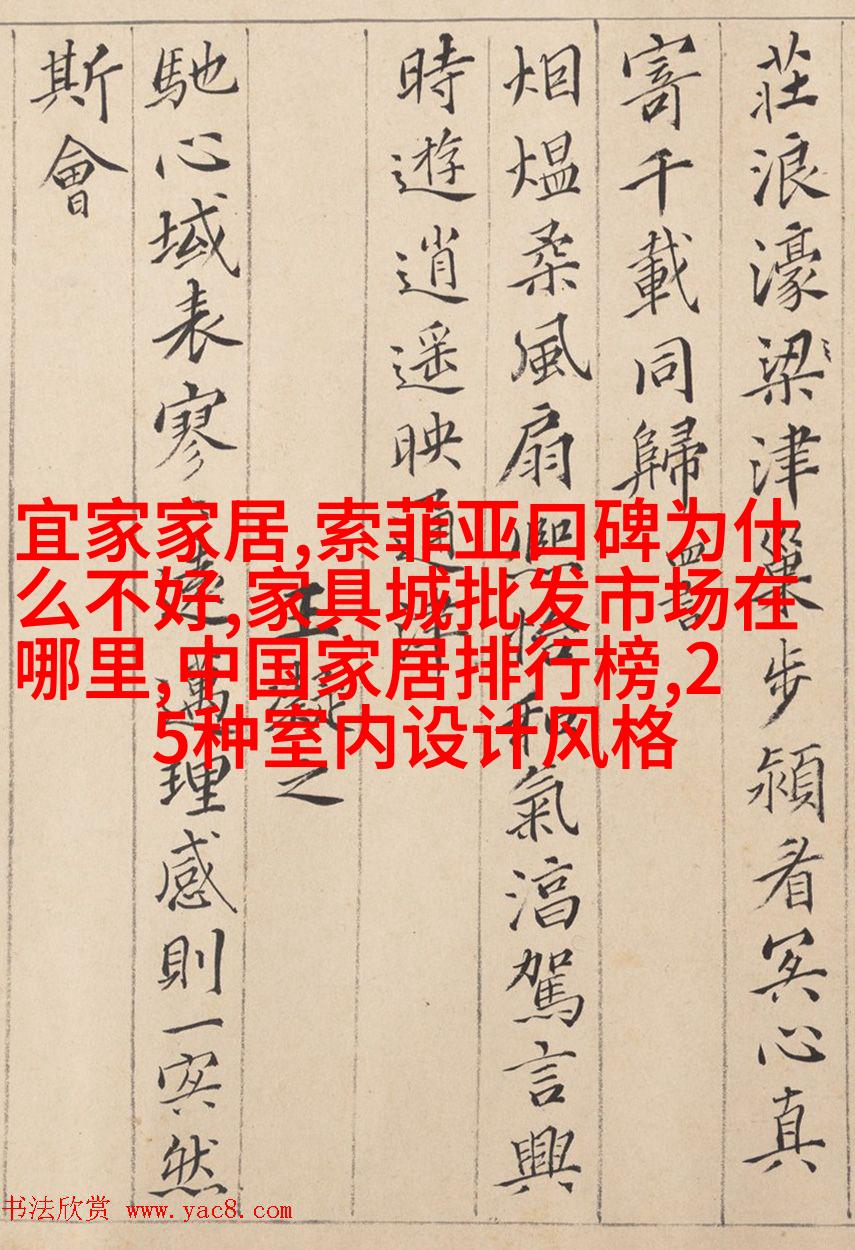 莊浪濠梁津巢步潁看冥心真
寄千載同歸 四言
烟熅柔風扇熙怡和氣淳駕言興
時遊逍遥映通津
王凝之
馳心域表寥遠邁理感則一冥然
斯會
宜家家居,索菲亚口碑为什
么不好,家具城批发市场在
哪里,中国家居排行榜,2
5种室内设计风格
书法欣赏 www.yac8.com